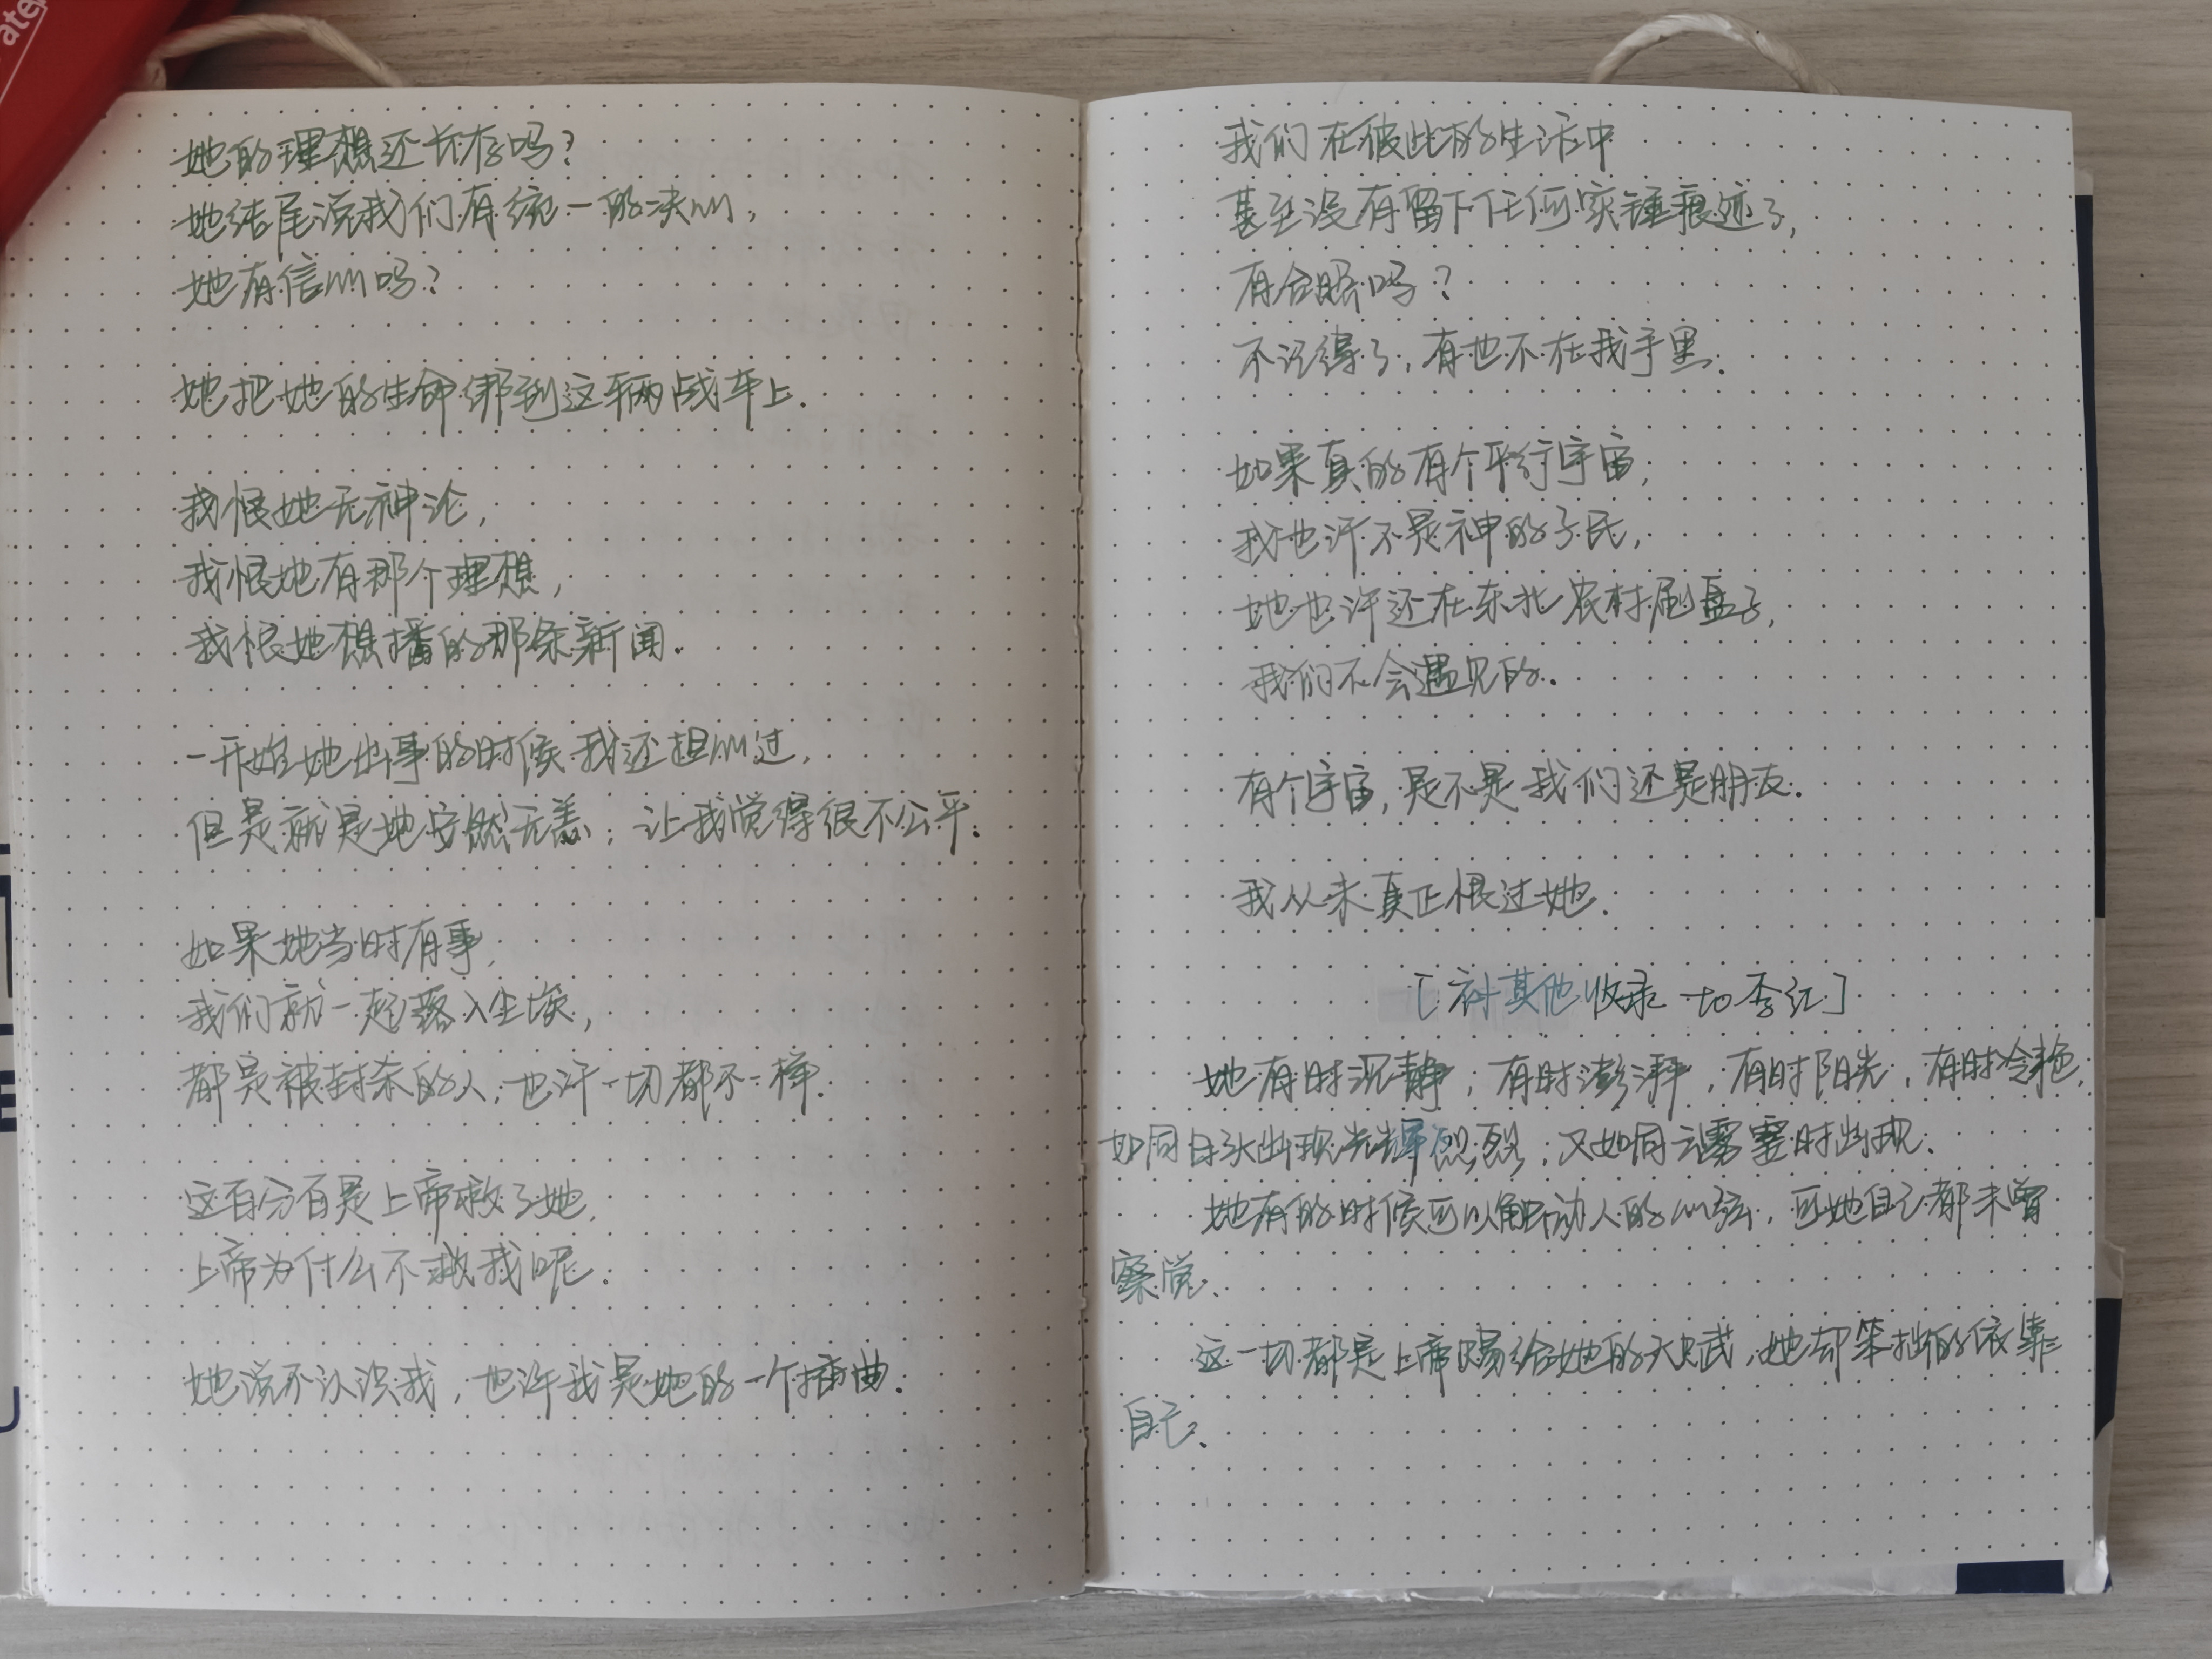 ate
她的理想还长存吗?
她结尾说我们有统一的决心,
她有信心吗?
她把她的生命绑到这辆战车上.
我恨她无神论,
我恨她有那个理想,
我恨她想播的那条新闻.
一开始她出事的时候我还担心过,
但是就是她安然无恙,让我觉得很不公平.
如果她当时有事,
我们就一起落入尘埃,
都是被封杀的人,也许一切都不一样.
这百分百是上帝救了她,
上帝为什么不救我呢.
她说不认识我,也许我是她的一个插曲.
我们在彼此的生活中
甚至没有留下任何实锤痕迹了,
有合照吗?
不记得了,有也不在我手里.
如果真的有个平行宇宙,
我也许不是神的子民,
她也许还在东北农村刷盘子,
我们不会遇见的.
有个宇宙,是不是我们还是朋友.
我从未真正恨过她.
[补其他收录 to 李红]
她有时沉静,有时澎湃,有时阳光,有时冷艳,
如同日头出现光辉烈烈,又如同云雾霎时出现.
她有的时候可以触动人的心弦,可她自己都未曾
察觉、
这一切都是上帝赐给她的天赋,她却笨拙的依靠
自己、